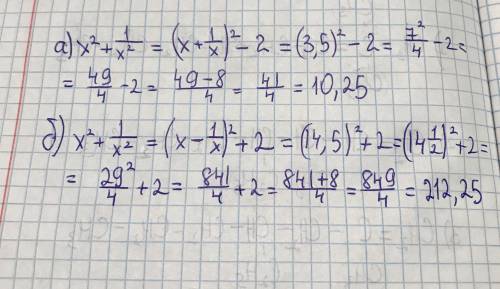 а) x² + 1/x² = (x + 1/x)² − 2 = (3,5)² − 2 = 7²/4 − 2 =
= 49/4 − 2 = (49−8)/4 = 41/4 = 10,25
б) x² + 1/x² = (x − 1/x)² + 2 = (14,5)² + 2 = (14 1/2)² + 2 =
= 29²/4 + 2 = 841/4 + 2 = (841+8)/4 = 849/4 = 212,25